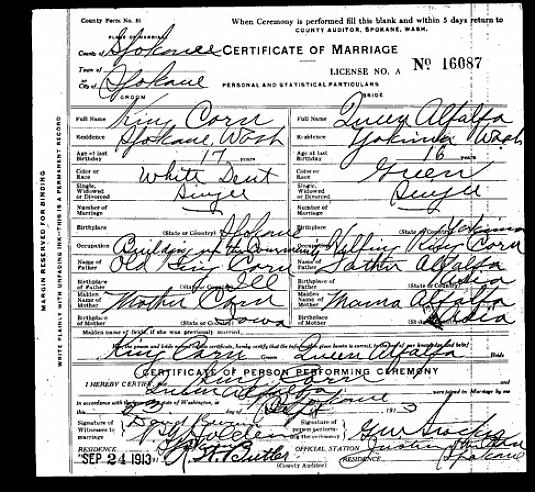 County Form No. 51
When Ceremony is performed fill this blank and within 5 days return to
COUNTY AUDITOR, SPOKANE, WASH.
PLACE OF MARRIAGE
County of Spokane
CERTIFICATE OF MARRIAGE
Town of
LICENSE NO. A Nº 16087
City of Spokane
PERSONAL AND STATISTICAL PARTICULARS
GROOM BRIDE
Full Name King Corn Full Name Queen Alfalfa
Residence Spokane, Wash Residence Yakima Wash
Age at last Birthday 17 years Age at last Birthday 16 years
Color or Race White Dent Color or Race Green
Single, Widowed or Divorced Single Single, Widowed or Divorced Single
Number of Marriage Number of Marriage
Birthplace (State or Country) Spokane Birthplace (State or Country) Yakima
Occupation Building up the Community Occupation Helping King Corn
Name of Father Old King Corn Name of Father Father Alfalfa
Birthplace of Father (State or Country) Ill Birthplace of Father
Maiden Name of Mother Mother Corn Maiden Name of Mother Mama Alfalfa
Birthplace of Mother (State or Country) Iowa Birthplace of Mother
Maiden name of bride, if she was previously married
We, the groom and bride named in this certificate, hereby certify that the information given herein is correct, to the best of our knowledge and belief
King Corn Groom Queen Alfalfa Bride
CERTIFICATE OF PERSON PERFORMING CEREMONY
I HEREBY CERTIFY, that King Corn and
Queen Alfalfa were joined in Marriage by me
in accordance with the laws of the State of Washington, at Spokane
this 23 day of Sept 1913
Signature of Witnesses to marriage
Signature of person performing the ceremony
RESIDENCE OFFICIAL STATION
SEP 24 1913 R. W. Butler RESIDENCE Spokane
(County Auditor)
MARGIN RESERVED FOR BINDING
WRITE PLAINLY WITH UNFADING INK—THIS IS A PERMANENT RECORD